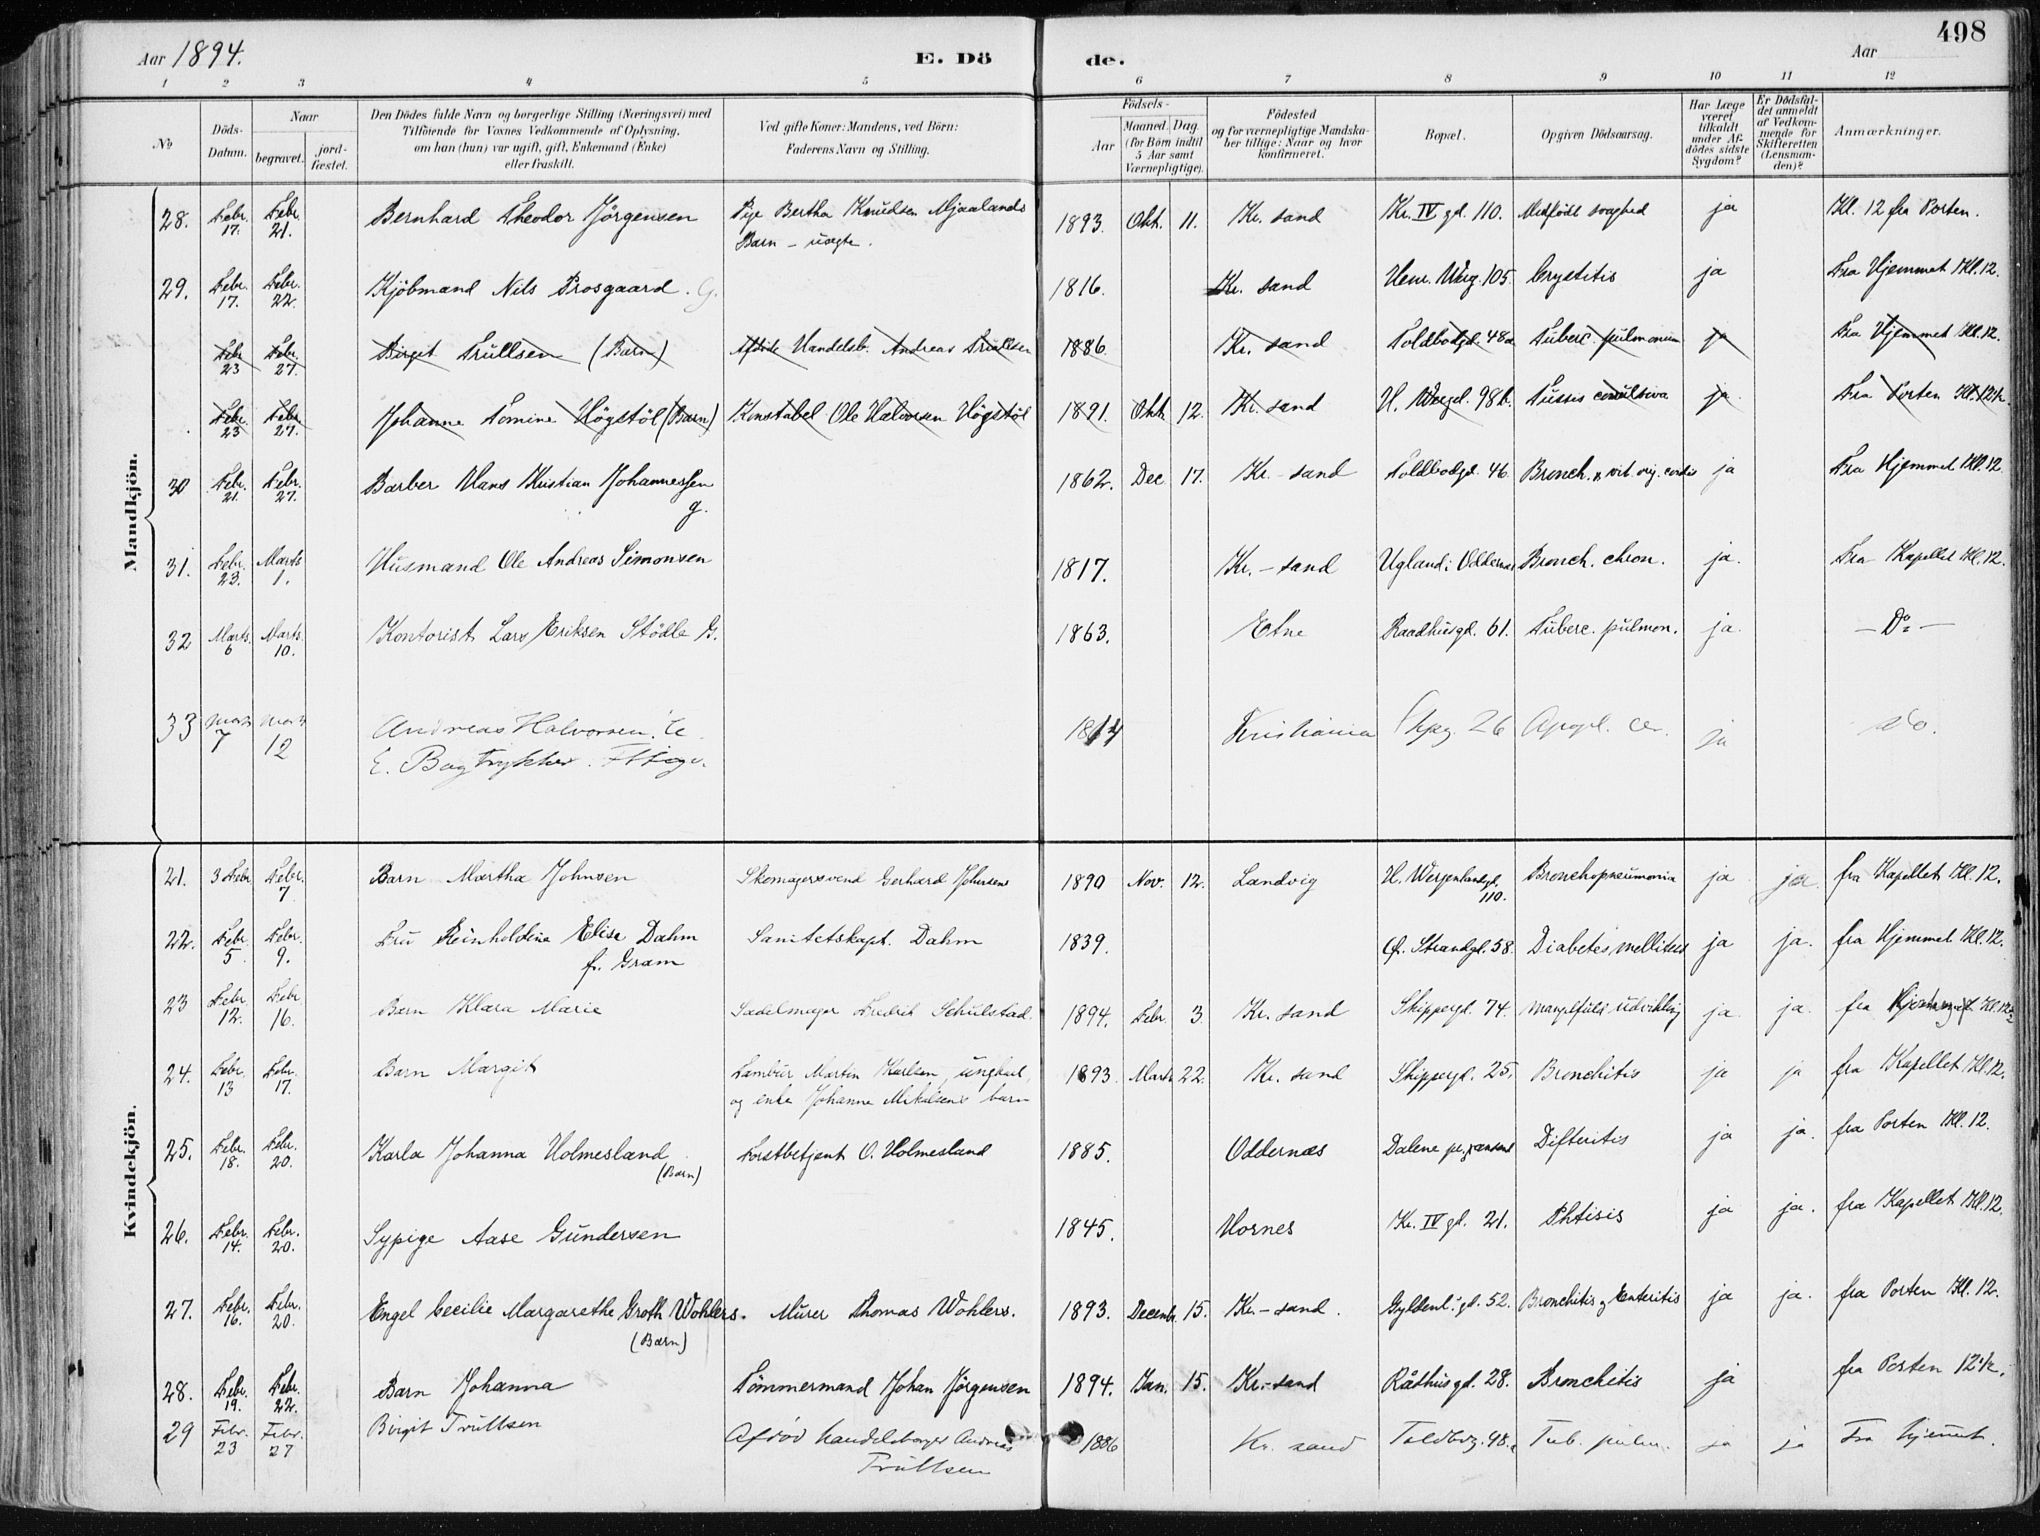 498
Aar 1894. E. Dö de. Aar
1 2 3 4 5 6 7 8 9 10 11 12
No
Döds-Datum.
Naar begravet. jordfæstet.
Den Dödes fulde Navn og borgerlige Stilling (Næringsvei) med
Tilföiende for Voxnes Vedkommende af Oplysning,
om han (hun) var ugift, gift, Enkemand (Enke)
eller fraskilt.
Ved gifte Koner: Mandens, ved Börn:
Faderens Navn og Stilling.
Födsels-
Aar Maaned. Dag.
(for Börn indtil 5 Aar samt Værnepligtige).
Födested
og for værnepligtige Mandskaber tillige: Naar og hvor konfirmeret.
Bopæl.
Opgiven Dödsaarsag.
Har Læge været tilkaldt under Afdödes sidste Sygdom?
Er Dödsfaldet anmeldt af Vedkommende for Skifteretten (Lensmanden)?
Anmærkninger.
Mandkjön.
28. Febr. 17. Febr. 21. Bernhard Theodor Jörgensen Pige Bertha Knudsen Mjaalands 1893. Okt. 11. Kr. sand Kr. IV gd. 110. Medfødt svaghed ja Kl. 12 fra Porten.
Barn - uægte.
29. Febr. 17. Febr. 22. Kjöbmand Nils Prosgaard. G. 1816. Kr. sand Henr. Werg. 105. Crystitis ja Fra Hjemmet Kl. 12.
Febr. 23 Febr. 27. Birgit Trullsen (Barn) Afdöde Handelsb. Andreas Trullsen 1886. Kr. sand Toldbodgd. 48a Tuberc. pulmonum ja Fra Hjemmet Kl. 12.
Febr. 23 Febr. 27. Johanne Tomine Högstöl (Barn) Konstabel Ole Halvorsen Högstöl 1891. Okt. 12. Kr. sand H. Wergd. 98b. Tussis ja Fra Porten Kl. 12½.
30 Febr. 21. Febr. 27. Barber Hans Kristian Johannessen 1862. Dec 17. Kr.-sand Toldbodgd. 46. Bronch. vit. cordis ja Fra Hjemmet Kl. 12
g.
31. Febr. 23. Marts 1. Husmand Ole Andreas Simonsen 1817. Kr.-sand Ugland i Oddernæs Bronch. chron. ja. Fra Kapellet Kl. 12.
32 Marts 6 Marts. 10. Kontorist Lars Eriksen Stödle G. 1863. Etne Raadhusgd. 61. Tuberc. pulmon. ja. - Do -
33 Marts 7 Marts 12 Andreas Halvorsen 1814 Kristiania 26 Apopl. cer. ja do.
E. Bogtrykker.
Kvindekjön.
21. 3 Febr Febr. 7. Barn Martha Johnsen Skomagersvend Gerhard Johnsens 1890 Nov. 12. Landvig H. Wergenlandgd. 110. Bronchopneumonia ja ja. fra Kapellet Kl. 12.
22. Febr. 5 Febr. 9. Fru Reinholdine Elise Dahm Sanitetskapt. Dahm 1839. Ø. Strandgd. 58. Diabetes mellitus ja ja. fra Hjemmet Kl. 12.
f. Gram
23 Febr 12. Febr 16. Barn Klara Marie Sadelmager Fredrik Schulstad. 1894. Febr. 3. Kr. sand Skippergd. 74. Mangelfuld udvikling ja ja. fra Hjemmet Kl. 12½
24. Febr. 13 Febr. 17. Barn Margit Tambur Martin Karlsen, ungkarl, 1893 Marts 22. Kr. sand Skippergd. 25. Bronchitis ja ja fra Kapellet Kl. 12.
og enke Johanne Mikalsens barn
25. Febr. 18. Febr. 20. Karla Johanna Holmesland (Barn) Forstbetjent O. Holmesland 1885. Oddernæs Dalene Difteritis ja ja. fra Porten Kl. 12.
26. Febr. 14. Febr. 20. Sypige Aase Gundersen 1845. Hornes Kr. IV gd. 21. Phtisis ja ja. fra Kapellet Kl. 12.
27. Febr. 16. Febr. 20. Engel Cecilie Margarethe Groth Wohlers. Murer Thomas Wohlers. 1893. Decembr. 15. Kr.-sand. Gyldenl. gd. 52. Bronchitis og Enteritis ja ja. fra Porten Kl. 12.
(Barn)
28. Febr. 19. Febr. 22. Barn Johanna Tömmermand Johan Jörgensen 1894. Jan. 15. Kr.-sand Rådhusgd. 28. Bronchitis ja fra Porten 12½.
29 Febr. 23 Febr. 27 Birgit Trullsen Afdöd handelsborger Andreas 1886 Kr. sand Toldbdg. 48.a Tub. pulm. ja ja Fra hjemmet.
Trullsen